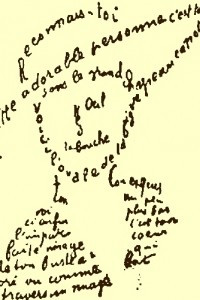 Reconnais-toi
tte adorable personne c'est to
sous le grand chapeau canoti
Œil
la bouche
Voici l'ovale de ta figure
ton cou exquis
voi
ci enfin
l'impar
faite image
de ton buste a
oré vu comme
travers un nuage
un peu
plus bas
c'est ton
coeur
qui
bat